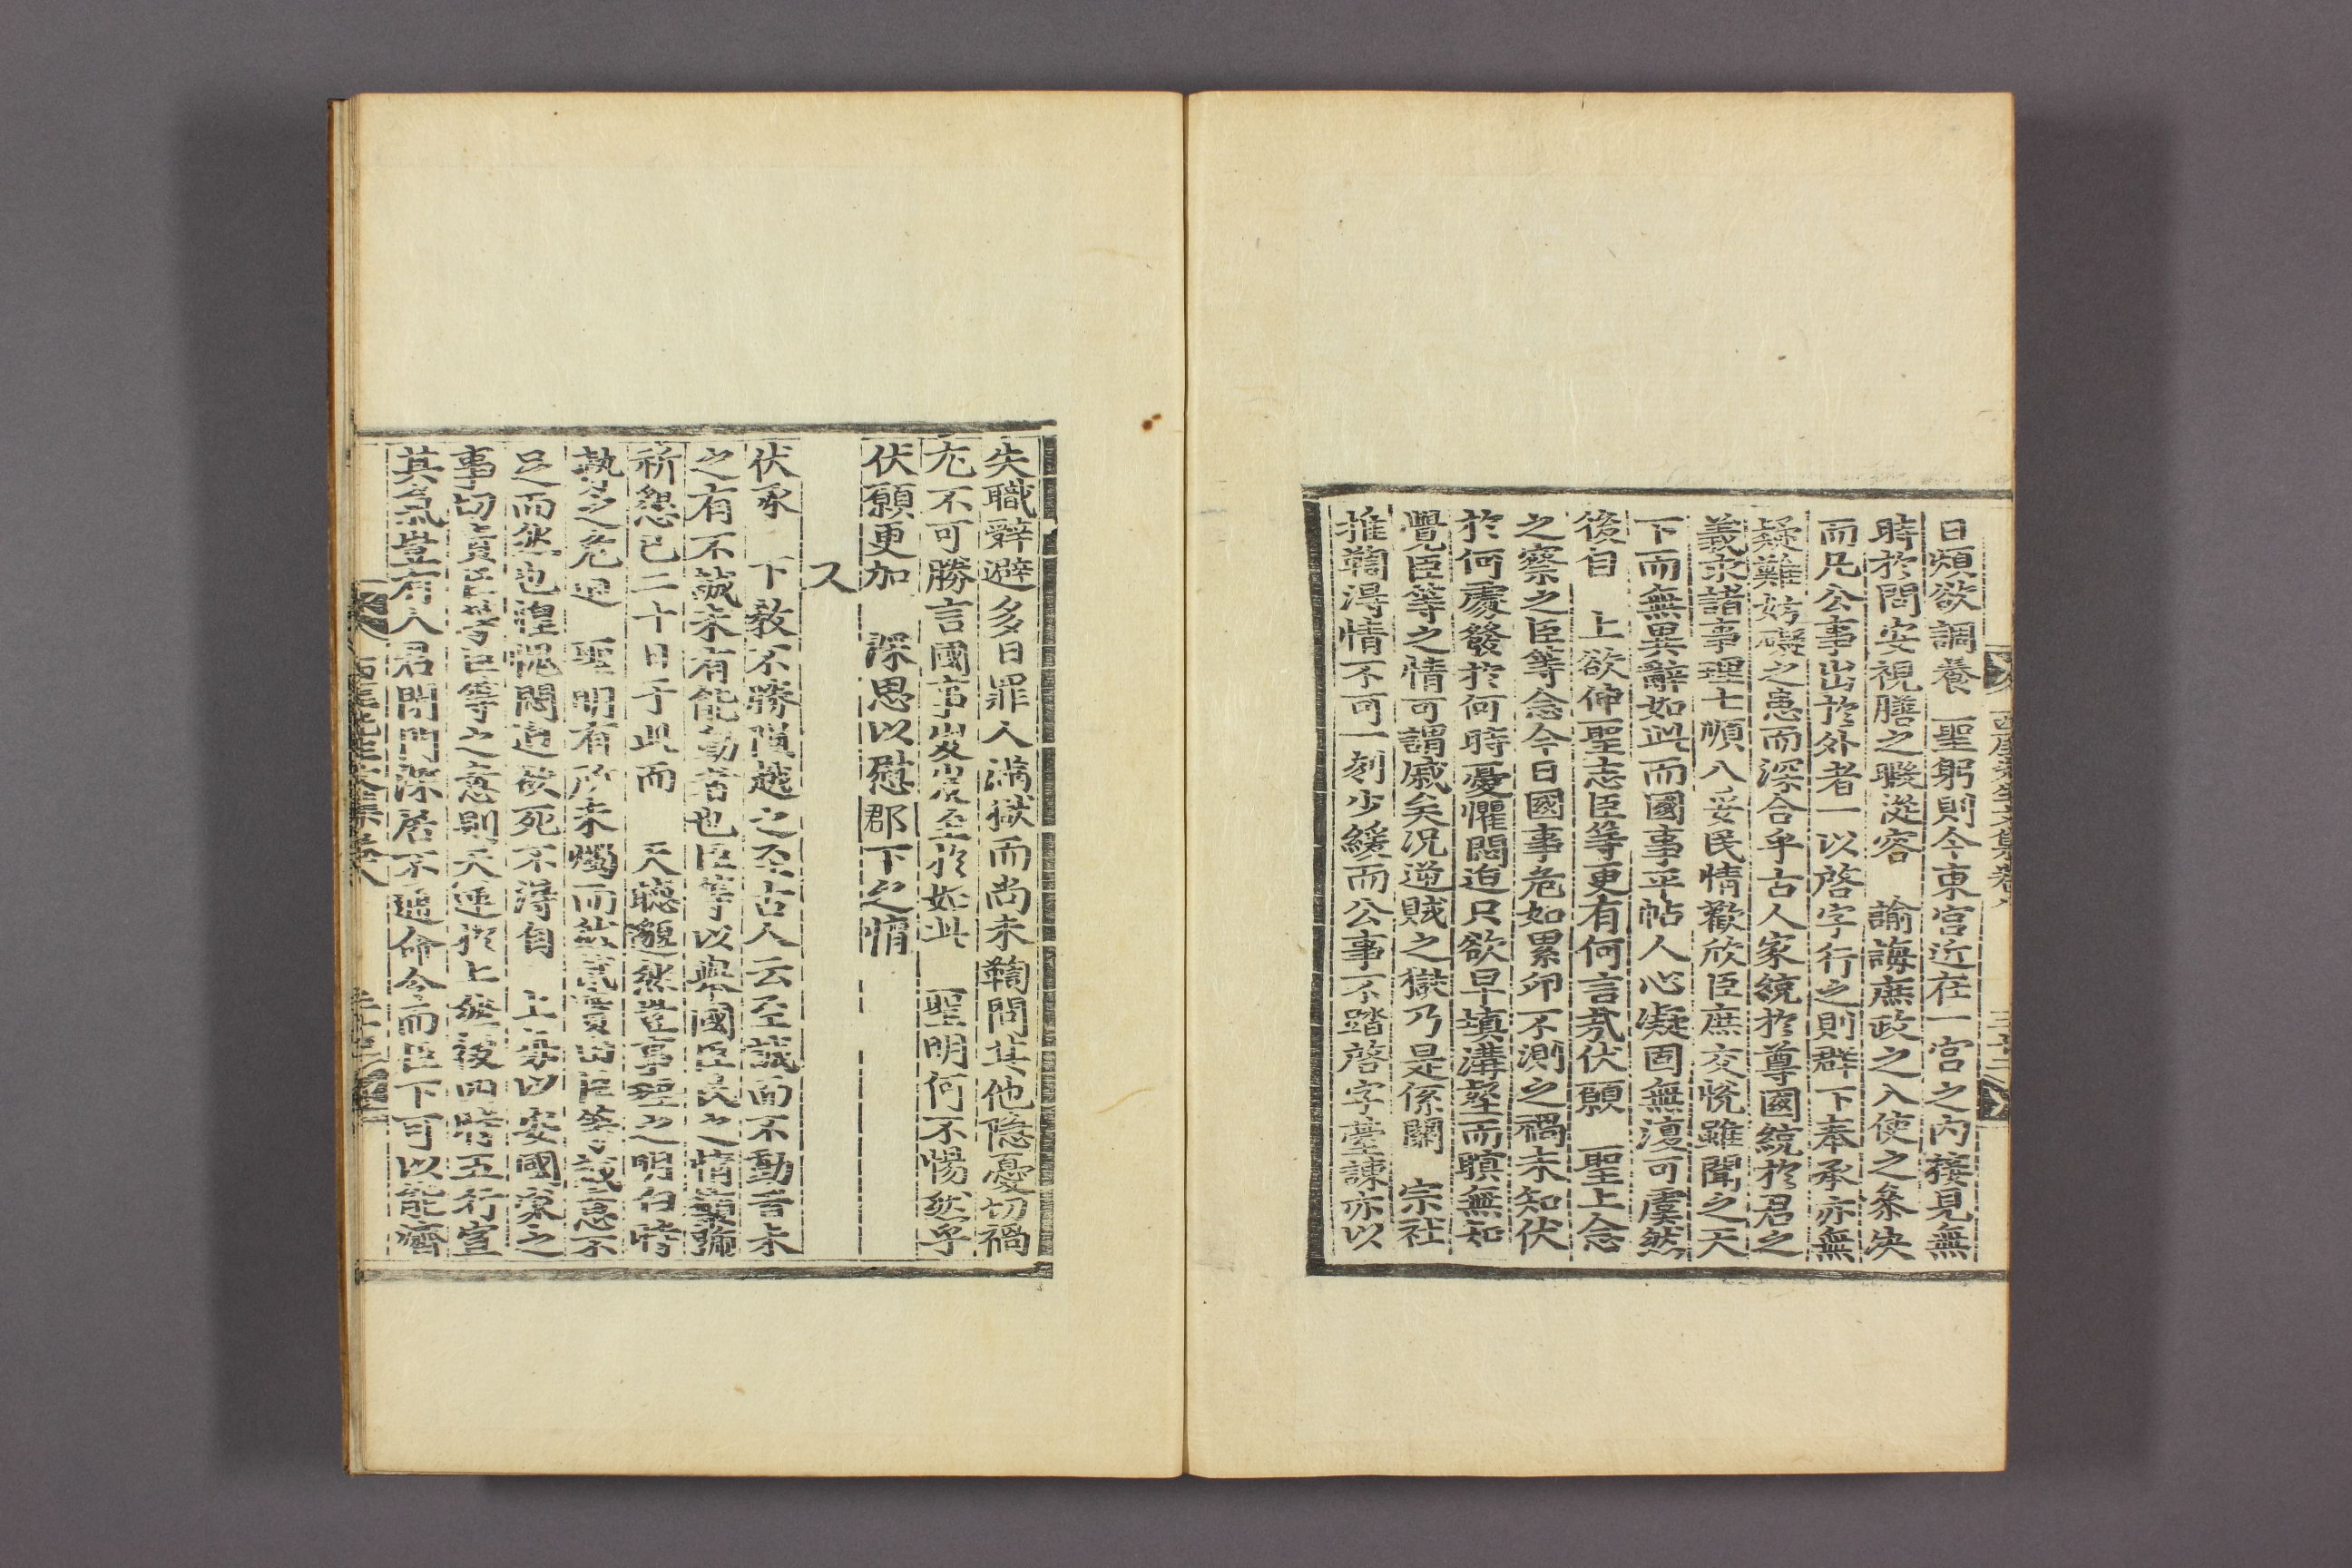 西厓先生文集卷八
日煩欲調養 聖躬則今東宮近在一宮之內接見無
時於問安視膳之暇從容 諭誨庶政之入使之參決
而凡公事出於外者一以啓字行之則群下奉承亦無
疑難妨礙之患而深合乎古人家統於尊國統於君之
義求諸事理七順八妥民情歡欣臣庶交悅雖聞之天
下而無異辭如此而國事平帖人心凝固無復可虞然
後自 上欲伸聖志臣等更有何言哉伏願 聖上念
之察之臣等念今日國事危如累卵不測之禍未知伏
於何處發於何時憂懼悶迫只欲早塡溝壑而瞑無知
覺臣等之情可謂慼矣況逆賊之獄乃是係關 宗社
推鞫得情不可一刻少緩而公事不踏啓字臺諫亦以
失職辭避多日罪人滿獄而尚未鞫問其他隱憂切禍
尤不可勝言國事岌岌至於如此 聖明何不惕然乎
伏願更加 深思以慰群下之情
又
伏承 下敎不勝隕越之至古人云至誠而不動者未
之有不誠未有能動者也臣等以擧國臣民之情號籲
祈懇已二十日于此而 天聽邈然豈事理之明白時
勢之危迫 聖明有所未燭而然哉實由臣等誠意不
足而然也惶愧悶迫欲死不得自 上每以安國家之
事切責臣等臣等之意則天運於上然後四時五行宣
其氣豈有人君閉門深居不通命令而臣下可以能濟